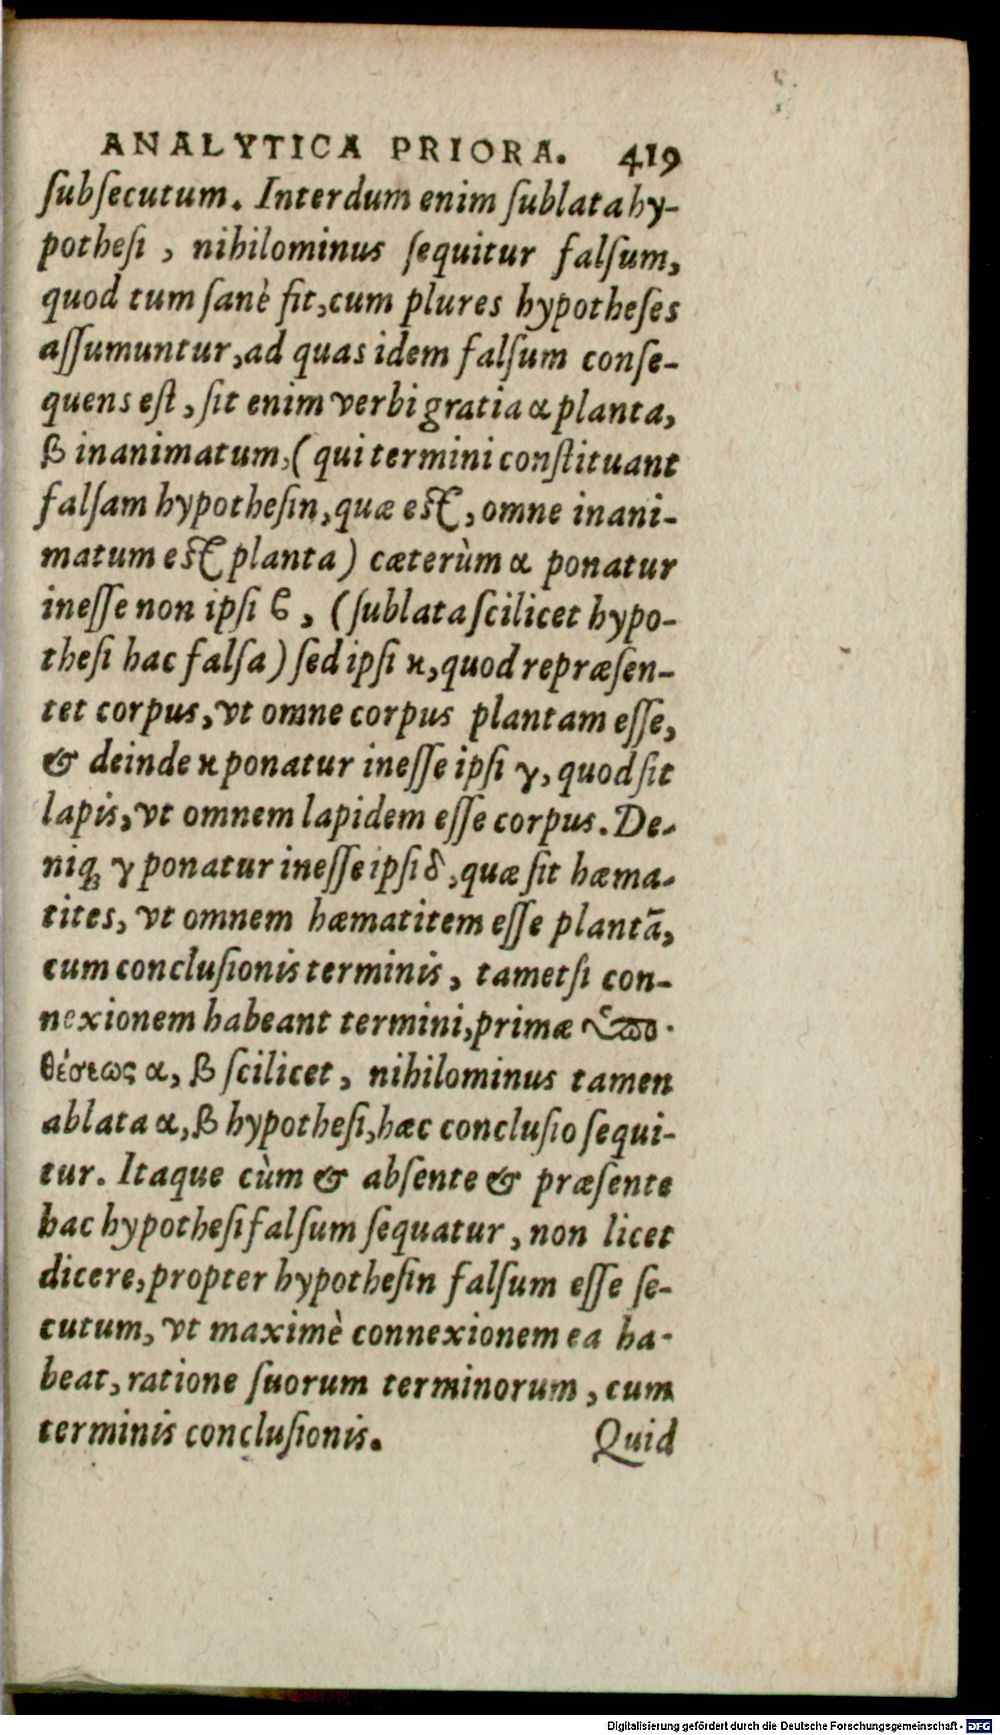 ANALYTICA PRIORA. 419
ſubſecutum. Interdum enim ſublata hy-
potheſi , nihilominus ſequitur falſum,
quod tum ſanè fit, cum plures hypotheſes
aſſumuntur, ad quas idem falſum conſe-
quens eſt, ſit enim verbi gratia α planta,
β inanimatum, ( qui termini conſtituant
falſam hypotheſin, quæ eſt, omne inani-
matum eſt planta ) cæterùm α ponatur
ineſſe non ipſi ϐ, ( ſublata ſcilicet hypo-
theſi hac falſa ) ſed ipſi κ, quod repræſen-
tet corpus, vt omne corpus plantam eſſe,
& deinde κ ponatur ineſſe ipſi γ, quod ſit
lapis, vt omnem lapidem eſſe corpus. De-
niq; γ ponatur ineſſe ipſi δ, quæ ſit hæma-
tites, vt omnem hæmatitem eſſe plantã,
cum concluſionis terminis, tametſi con-
nexionem habeant termini, primæ ὑπο-
θέσεως α, β ſcilicet, nihilominus tamen
ablata α, β hypotheſi, hæc concluſio ſequi-
tur. Itaque cùm & abſente & præſente
hac hypotheſi falſum ſequatur, non licet
dicere, propter hypotheſin falſum eſſe ſe-
cutum, vt maximè connexionem ea ha-
beat, ratione ſuorum terminorum, cum
terminis concluſionis. Quid
Digitalisierung gefördert durch die Deutsche Forschungsgemeinschaft - DFG